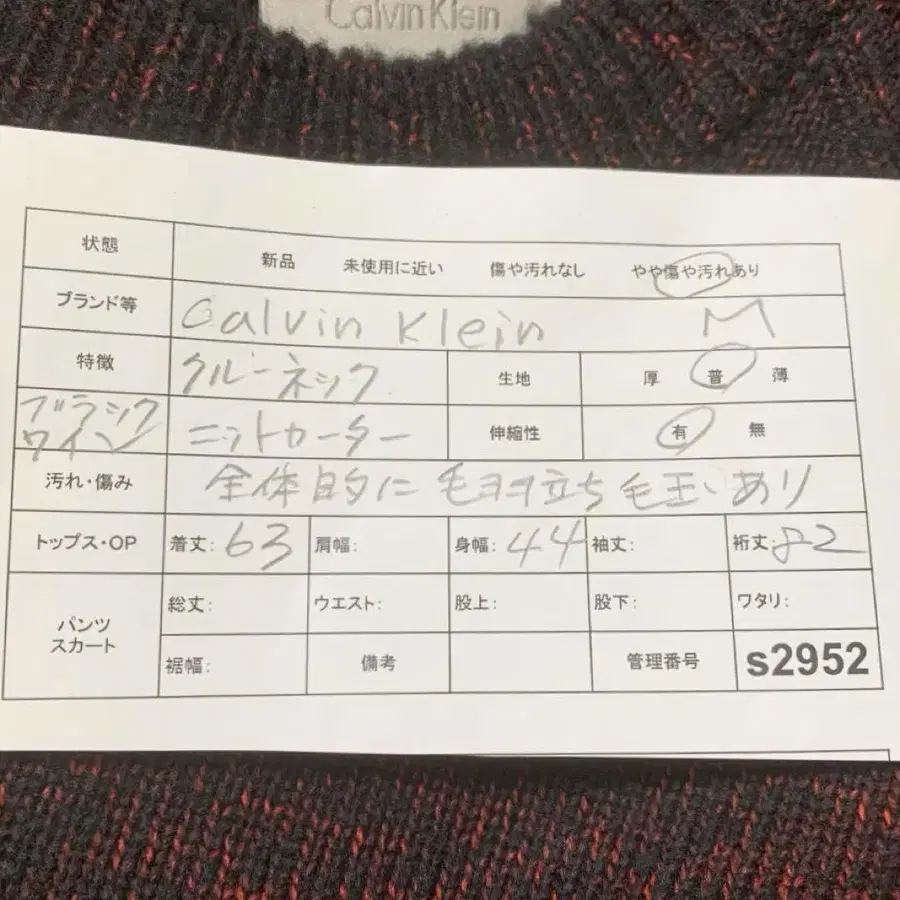 Calvin Klein
状態 新品 未使用に近い 傷や汚れなし やや傷や汚れあり
ブランド等 Calvin Klein M
特徴 クルーネック 生地 厚 普 薄
ブラック ワイン ニットセーター 伸縮性 有 無
汚れ・傷み 全体的に毛羽立ち毛玉あり
トップス・OP 着丈: 63 肩幅: 身幅: 44 袖丈: 裄丈: 82
パンツ スカート 総丈: ウエスト: 股上: 股下: ワタリ:
裾幅: 備考 管理番号 s2952